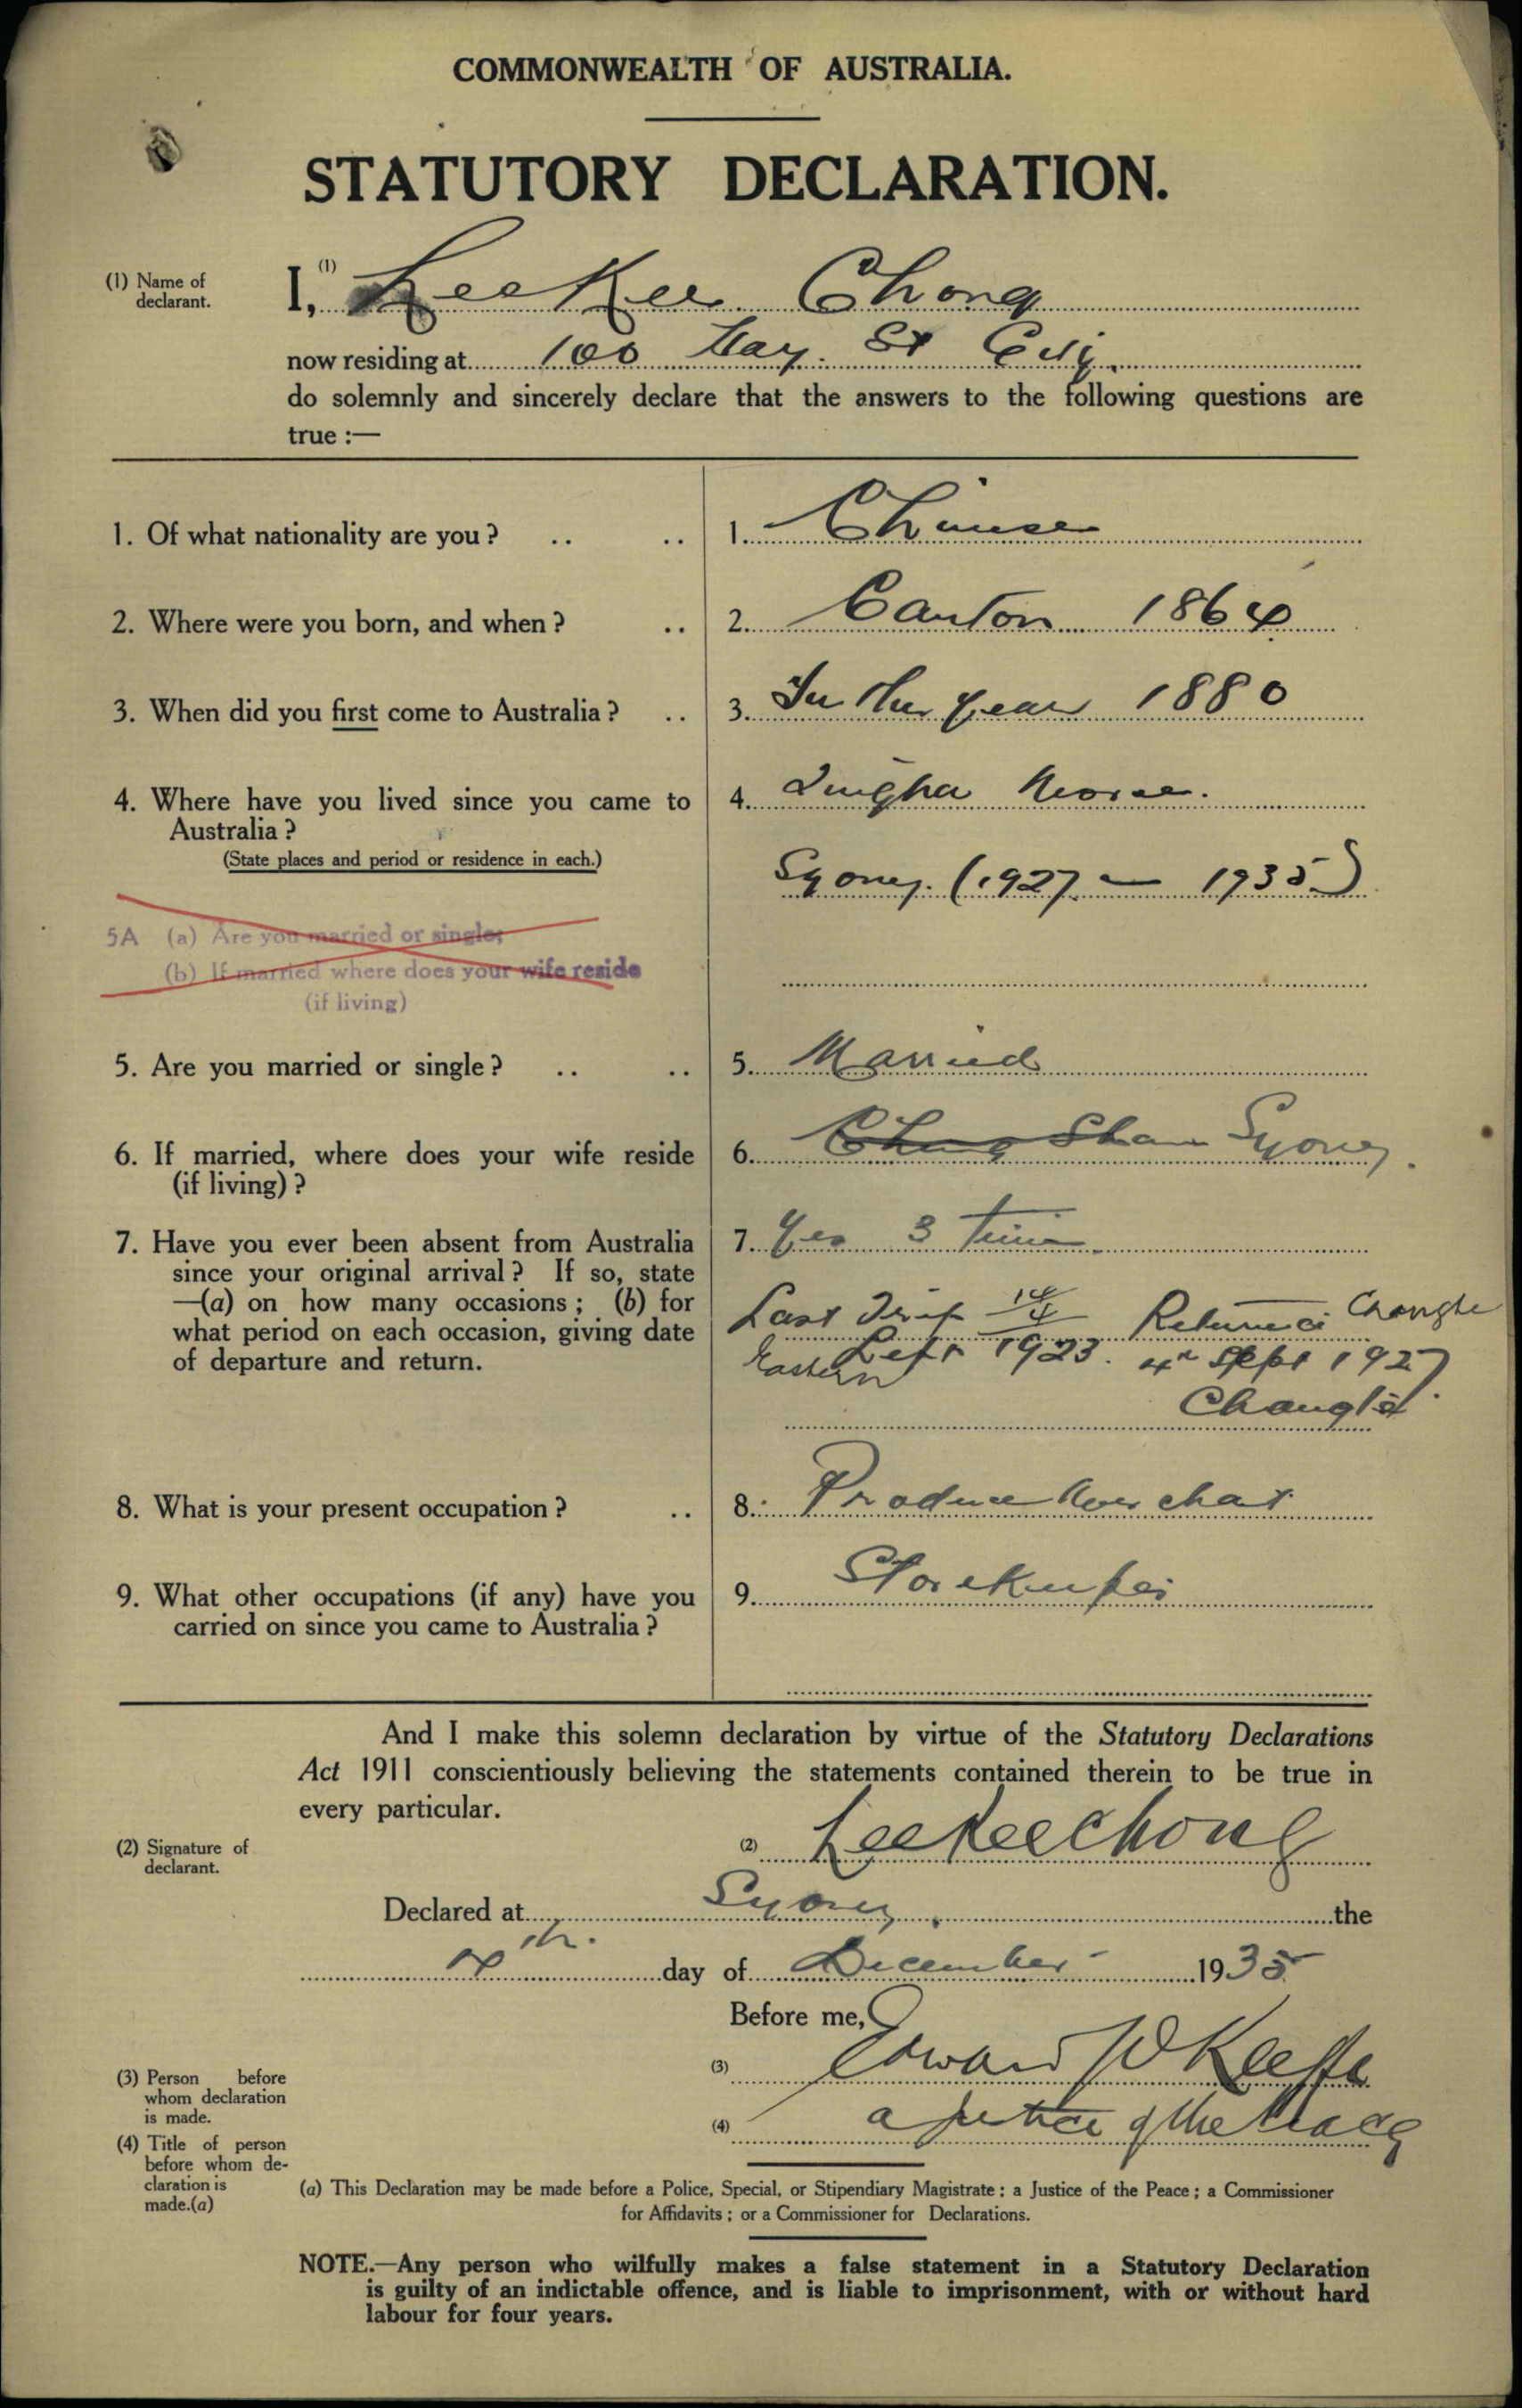 COMMONWEALTH OF AUSTRALIA.
STATUTORY DECLARATION.
(1) Name of declarant.
I, (1) Lee Kee Chong
now residing at 100 Hay St City
do solemnly and sincerely declare that the answers to the following questions are
true :—
1. Of what nationality are you ? .. .. 1. Chinese
2. Where were you born, and when ? .. 2. Canton 1864
3. When did you first come to Australia ? .. 3. In the year 1880
4. Where have you lived since you came to 4. Tingha
Australia ?
(State places and period or residence in each.)
Sydney. (1927 — 1935)
5A (a) Are you married or single;
(b) If married where does your wife reside
(if living)
5. Are you married or single ? .. .. 5. Married
6. If married, where does your wife reside 6. Chung Shan Sydney.
(if living) ?
7. Have you ever been absent from Australia 7. Yes 3 times
since your original arrival ? If so, state
—(a) on how many occasions ; (b) for
what period on each occasion, giving date
of departure and return.
Last Trip 14/4 Returned Changte
Left 1923. 4th Sept 1927
Eastern
Changte.
8. What is your present occupation ? .. 8. Produce Merchat
9. What other occupations (if any) have you 9. Storekeeper
carried on since you came to Australia ?
And I make this solemn declaration by virtue of the Statutory Declarations
Act 1911 conscientiously believing the statements contained therein to be true in
every particular.
(2) Signature of declarant.
(2) Lee Kee Chong
Declared at Sydney the
4th. day of December 1935
Before me,
(3) Person before whom declaration is made.
(3) Edward W Keeffe
(4) Title of person before whom declaration is made.(a)
(4) a Justice of the Peace
(a) This Declaration may be made before a Police, Special, or Stipendiary Magistrate ; a Justice of the Peace ; a Commissioner
for Affidavits ; or a Commissioner for Declarations.
NOTE.—Any person who wilfully makes a false statement in a Statutory Declaration
is guilty of an indictable offence, and is liable to imprisonment, with or without hard
labour for four years.